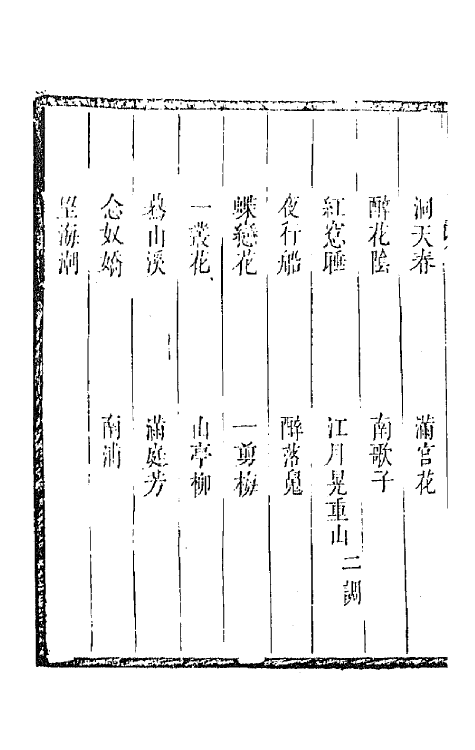 洞天春　滿宮花
醉花陰　南歌子
紅窓睡　江月晃重山二調
夜行船　醉落魄
蝶戀花　一剪梅
一叢花　山亭柳
驀山溪　滿庭芳
念奴嬌　南浦
望海潮